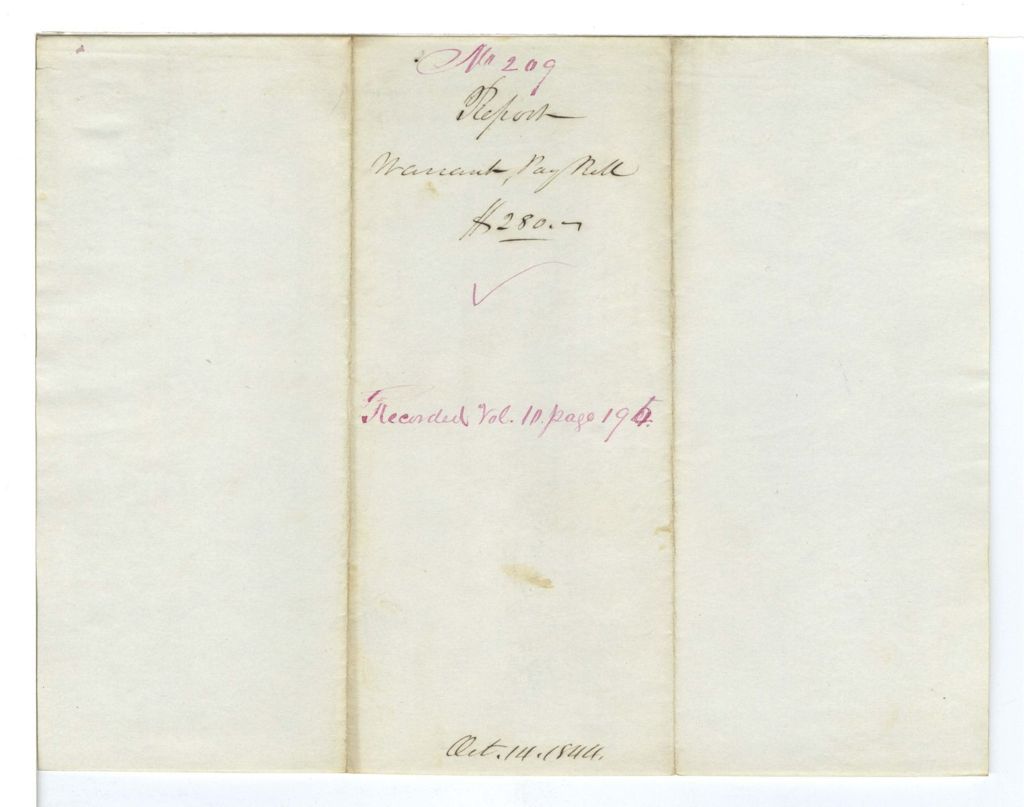 No 209
Report
Warrant, Pay Roll
$280.–
Recorded Vol. 10. page 195.
Oct. 14. 1844.